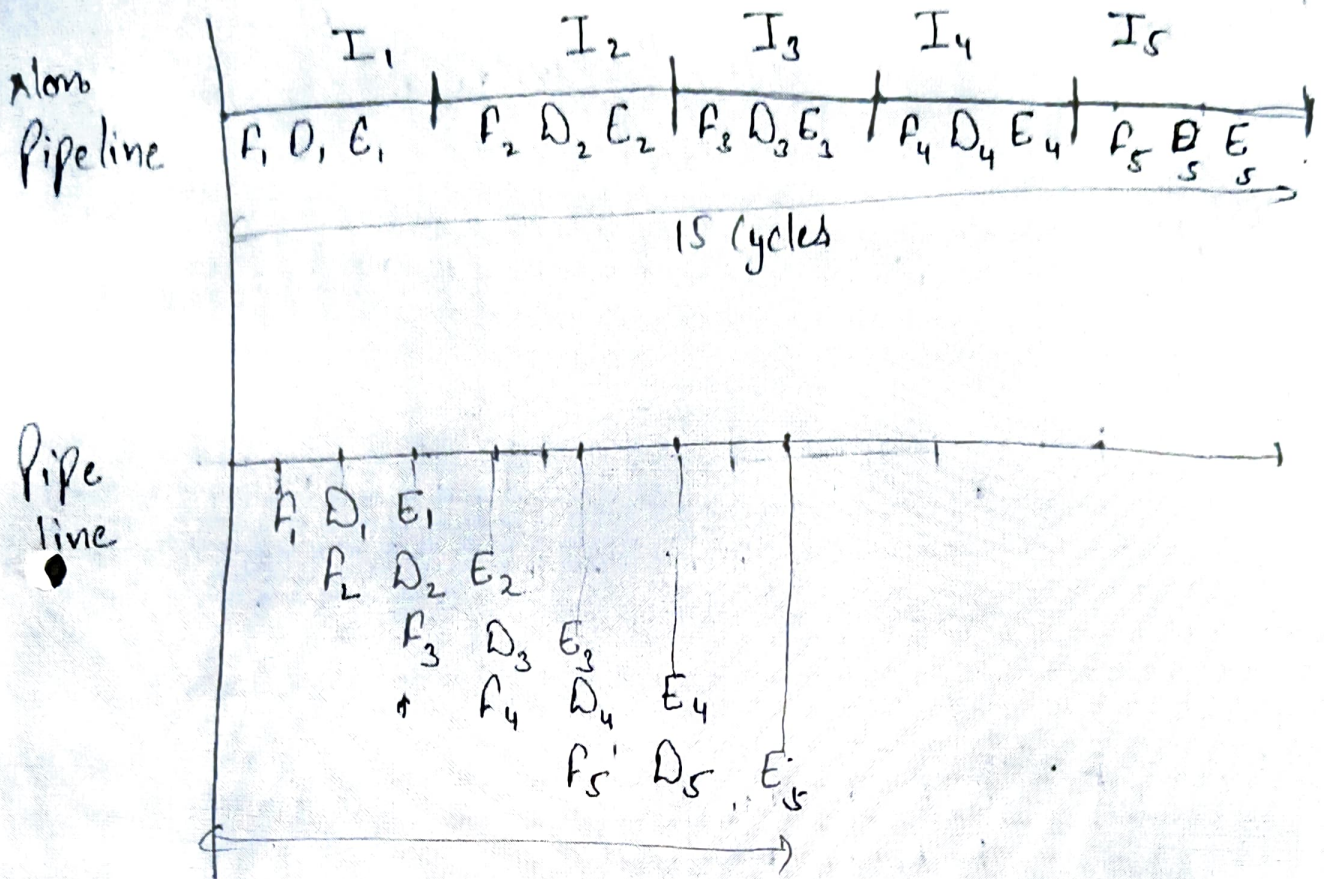 I₁ I₂ I₃ I₄ I₅
Pipeline
F₁ D₁ E₁ F₂ D₂ E₂ F₃ D₃ E₃ F₄ D₄ E₄ F₅ D₅ E₅
15 Cycles
Pipe
line
F₁ D₁ E₁
F₂ D₂ E₂
F₃ D₃ E₃
F₄ D₄ E₄
F₅ D₅ E₅